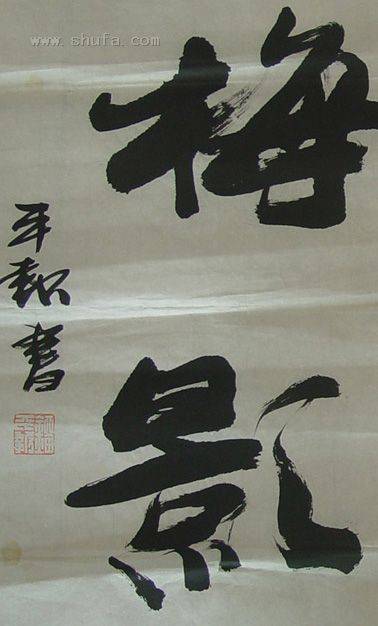 www.shufa.com
梅影
平
書